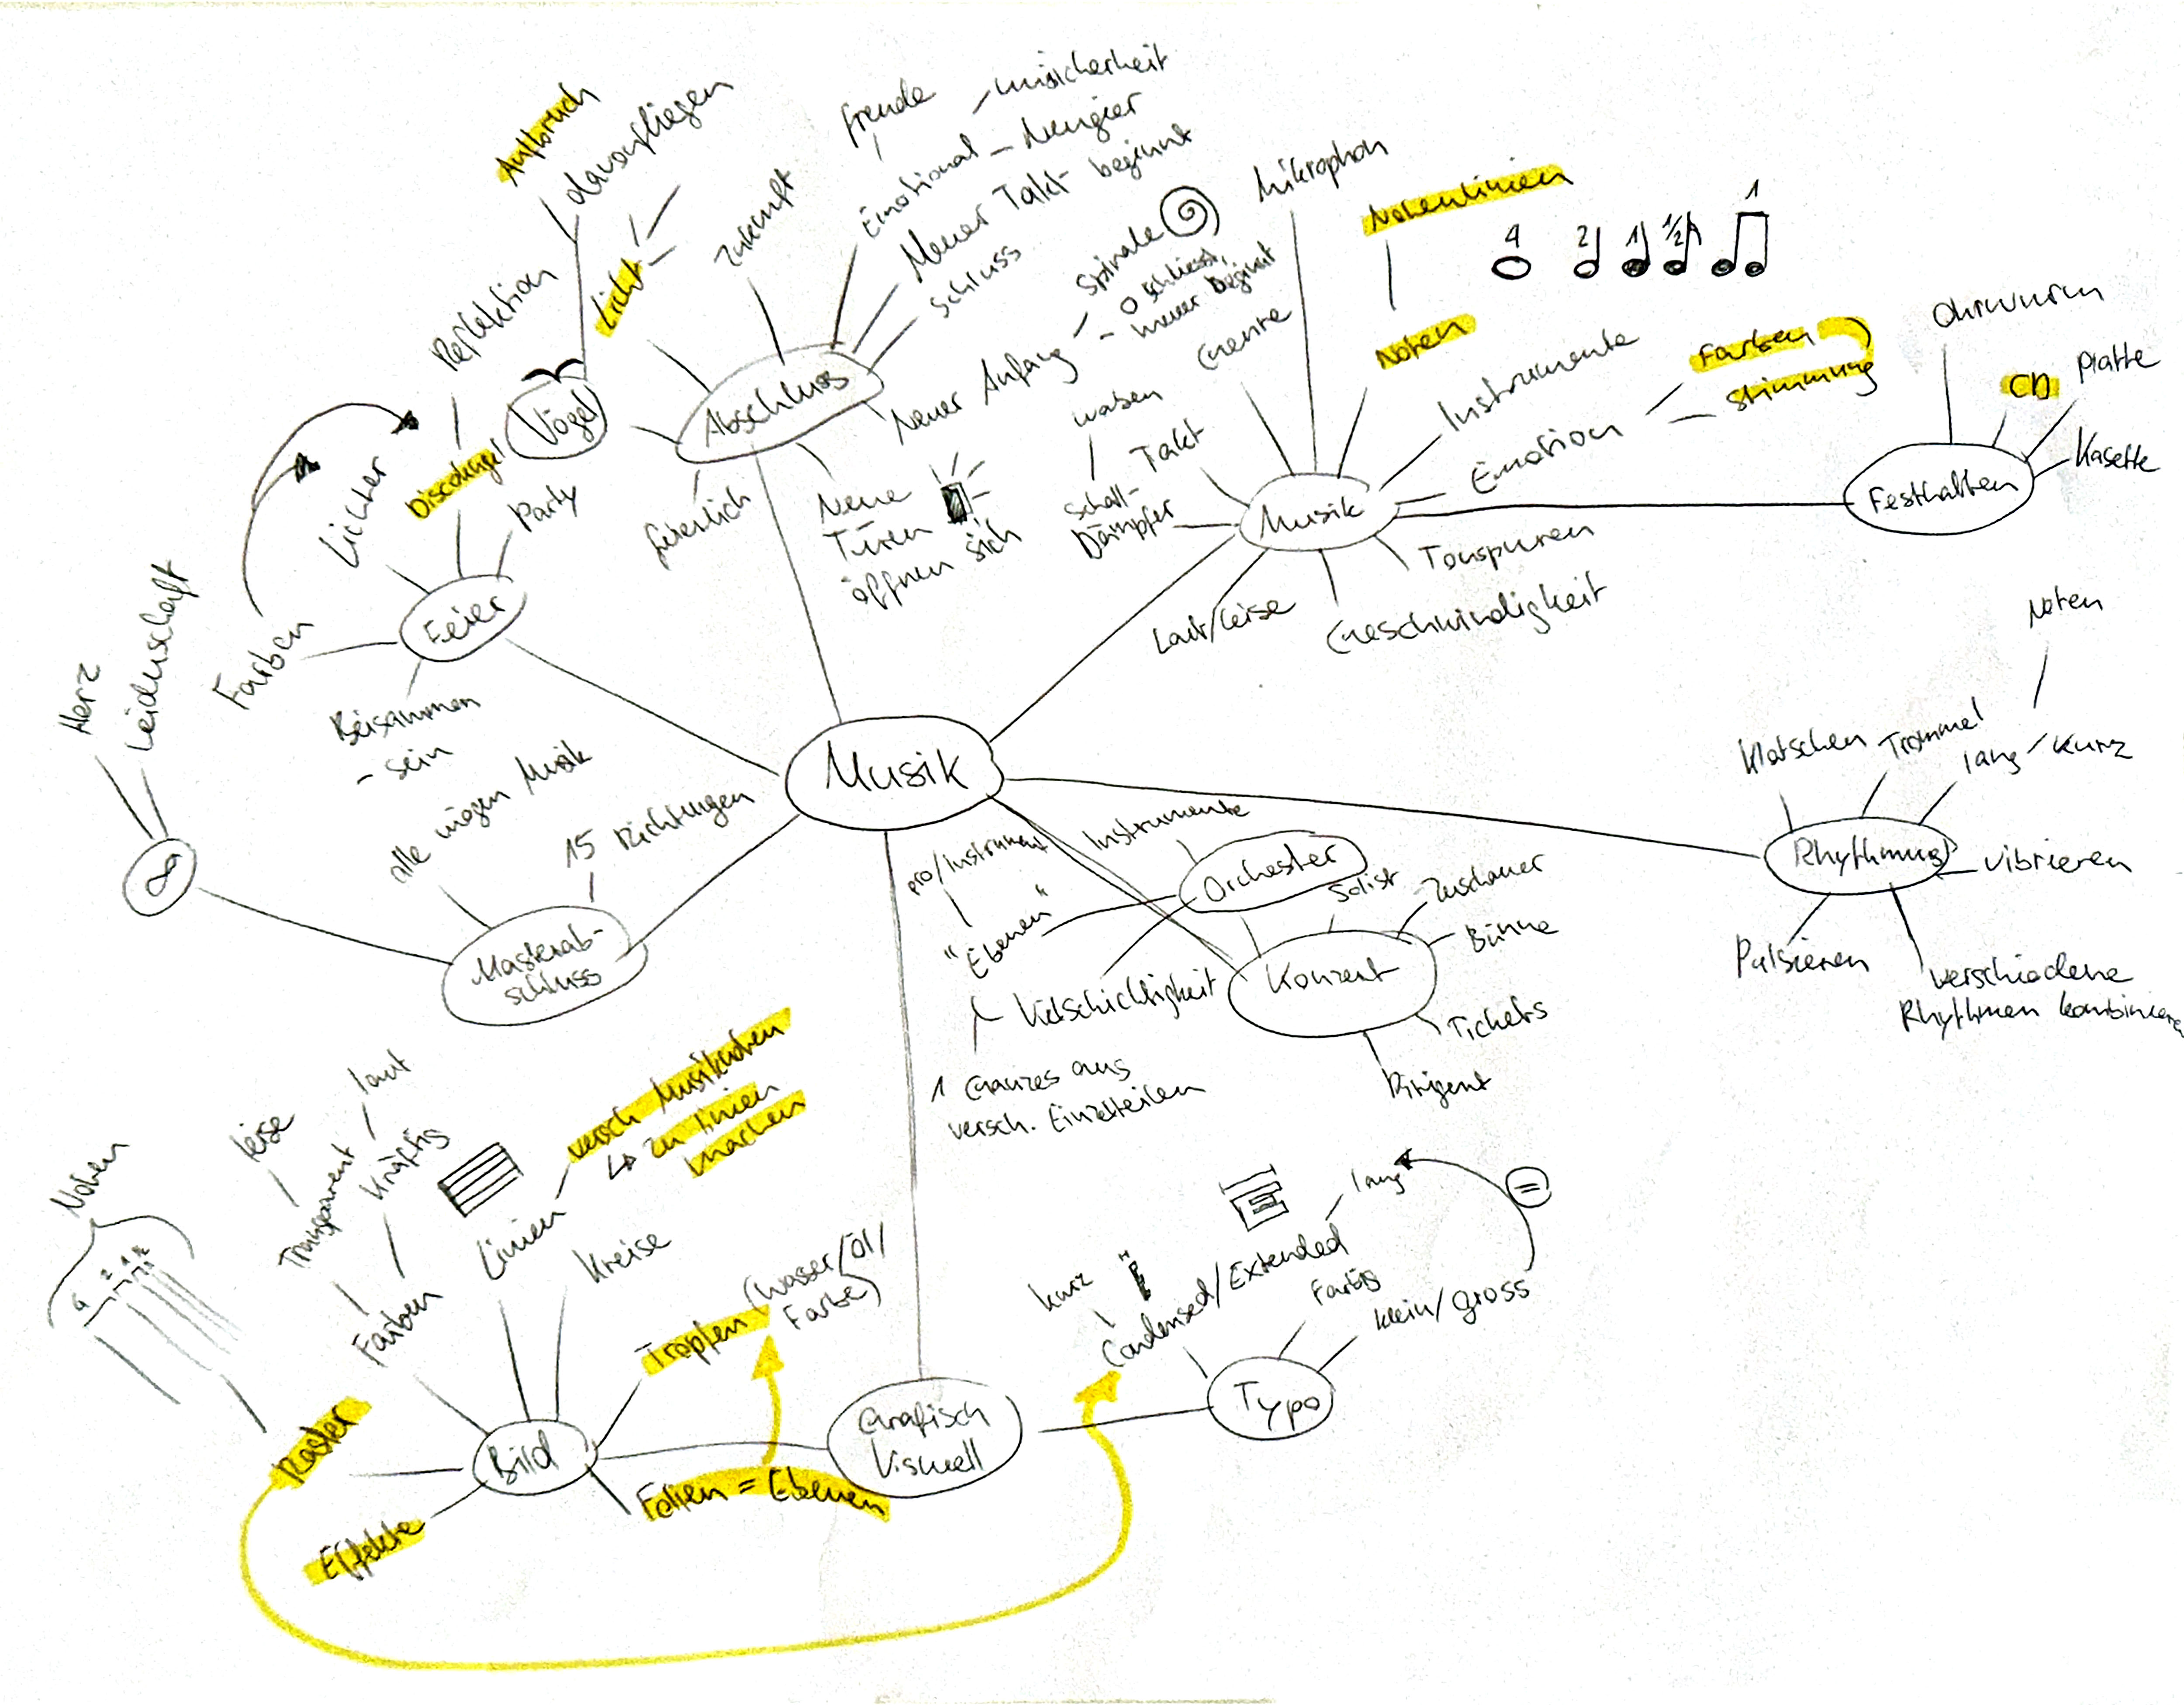 Aufbruch
davonfliegen
Reflektion
Licht
Zukunft
Freude
unsicherheit
Emotional – Neugier
Neuer Takt beginnt
Schluss
Spirale
schliesst,
neuer beginnt
Neuer Anfang
Vögel
Abschluss
feierlich
Neue
Türen
öffnen sich
Discokugel
Lichter
Party
Feier
Farben
Beisammen
- sein
Herz
Leidenschaft
∞
alle mögen Musik
15 Richtungen
Masterab-
schluss
Musik
Mikrophon
Notenlinien
4 2 1 1/2 1
Noten
Genre
waben
Takt
Schall-
Dämpfer
Musik
Instrumente
Emotion
Farben
Stimmung
Tonspuren
Geschwindigkeit
Laut/Leise
Festhalten
Ohrwurm
CD
Platte
Kasette
Noten
Klatschen
Trommel
lang / kurz
Rhythmus
vibrieren
Pulsieren
verschiedene
Rhythmen kombinieren
Instrumente
pro/Instrument
Orchester
"Ebenen"
Vielschichtigkeit
1 Ganzes aus
versch. Einzelteilen
Solist
Zuschauer
Bühne
Konzert
Tickets
Dirigent
versch Musiknoten
↳ zu Linien
machen
laut
leise
Transparent
kräftig
Noten
4 2 1
Linien
Kreise
Farben
Tropfen (Wasser/Öl/
Farbe)
Raster
Bild
Effekte
Folien = Ebenen
Grafisch
Visuell
kurz
lang
=
Condensed/Extended
Farbig
klein/gross
Typo